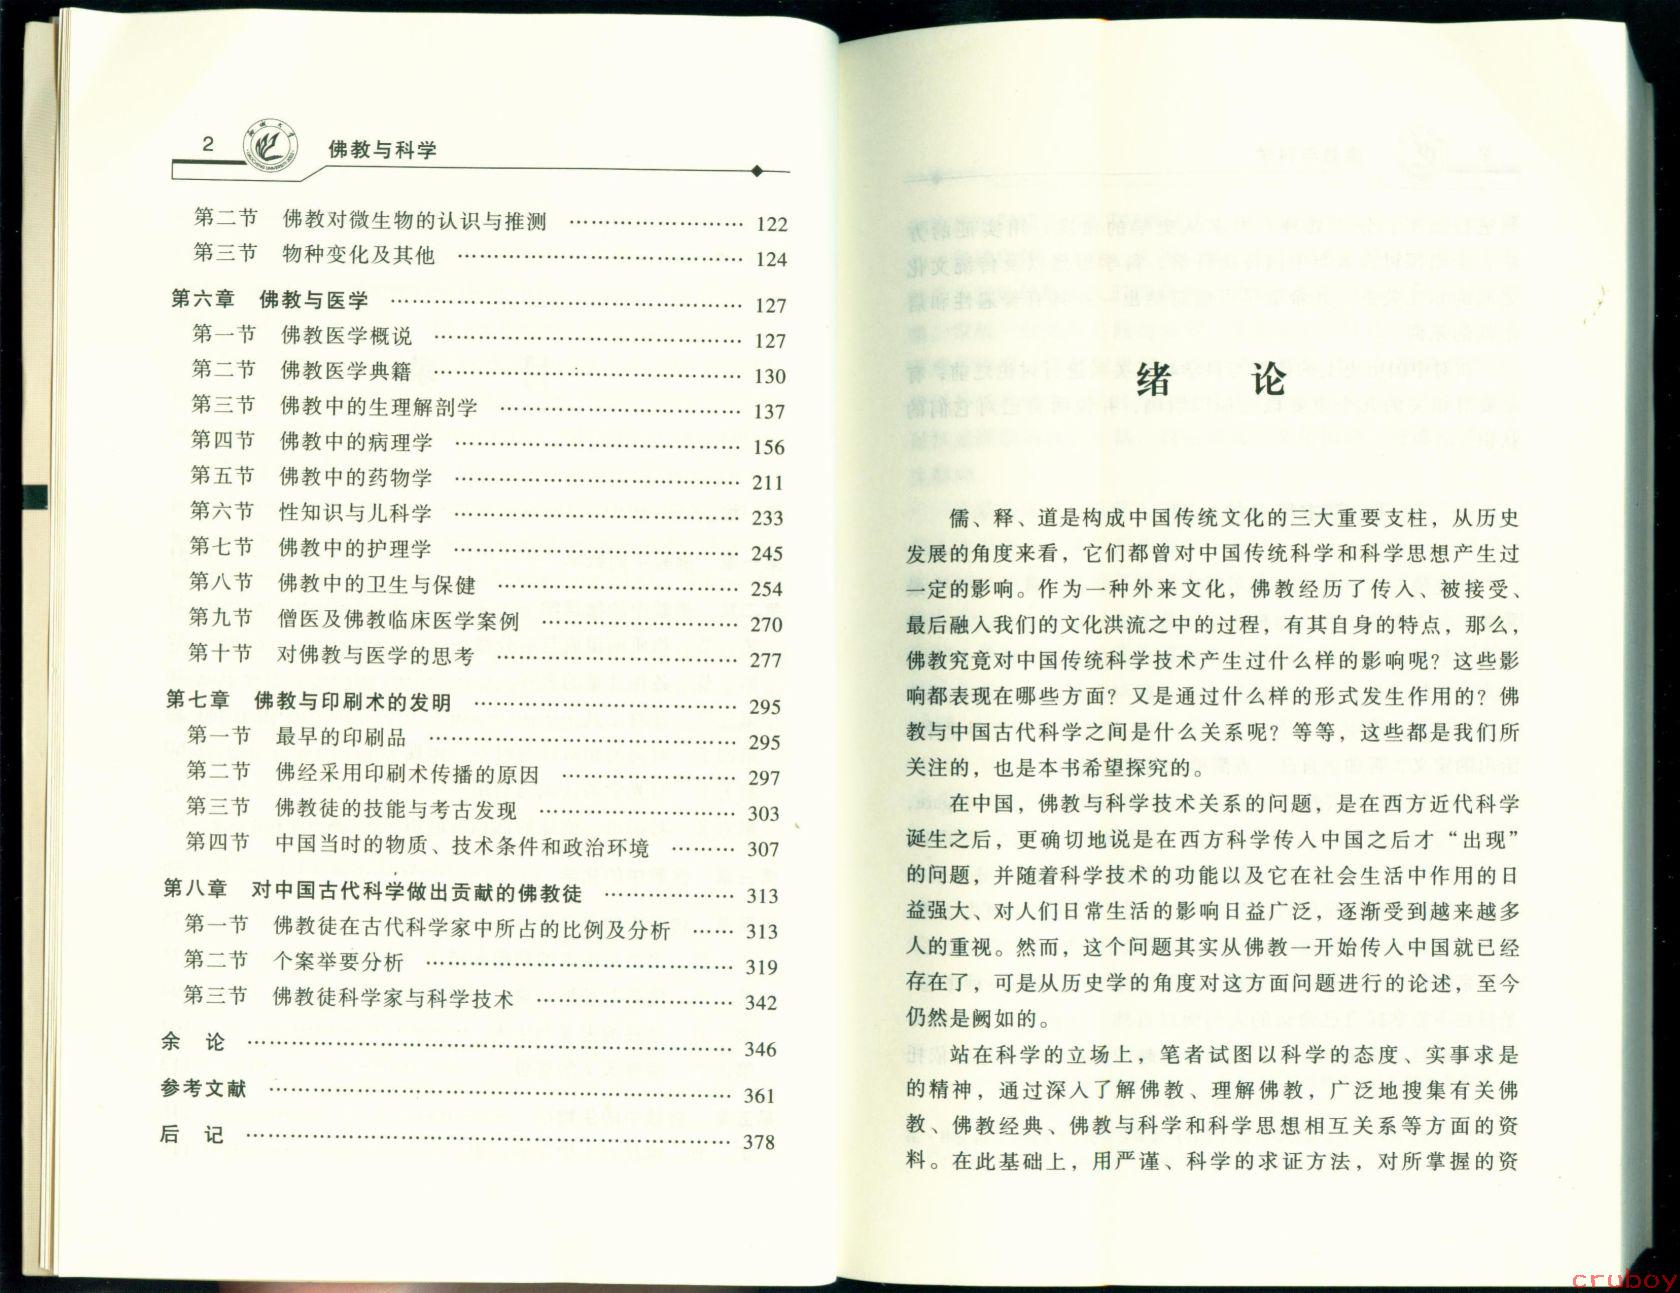 2
佛教与科学
第二节 佛教对微生物的认识与推测 ………………… 122
第三节 物种变化及其他 ………………………… 124
第六章 佛教与医学 ……………………………… 127
第一节 佛教医学概说 …………………………… 127
第二节 佛教医学典籍 …………………………… 130
第三节 佛教中的生理解剖学 ……………………… 137
第四节 佛教中的病理学 ………………………… 156
第五节 佛教中的药物学 ………………………… 211
第六节 性知识与儿科学 ………………………… 233
第七节 佛教中的护理学 ………………………… 245
第八节 佛教中的卫生与保健 ……………………… 254
第九节 僧医及佛教临床医学案例 ………………… 270
第十节 对佛教与医学的思考 ……………………… 277
第七章 佛教与印刷术的发明 ……………………… 295
第一节 最早的印刷品 …………………………… 295
第二节 佛经采用印刷术传播的原因 ……………… 297
第三节 佛教徒的技能与考古发现 ………………… 303
第四节 中国当时的物质、技术条件和政治环境 ……… 307
第八章 对中国古代科学做出贡献的佛教徒 ………… 313
第一节 佛教徒在古代科学家中所占的比例及分析 …… 313
第二节 个案举要分析 …………………………… 319
第三节 佛教徒科学家与科学技术 ………………… 342
余 论 …………………………………………… 346
参考文献 ………………………………………… 361
后 记 …………………………………………… 378
绪 论
儒、释、道是构成中国传统文化的三大重要支柱，从历史
发展的角度来看，它们都曾对中国传统科学和科学思想产生过
一定的影响。作为一种外来文化，佛教经历了传入、被接受、
最后融入我们的文化洪流之中的过程，有其自身的特点，那么，
佛教究竟对中国传统科学技术产生过什么样的影响呢？这些影
响都表现在哪些方面？又是通过什么样的形式发生作用的？佛
教与中国古代科学之间是什么关系呢？等等，这些都是我们所
关注的，也是本书希望探究的。
在中国，佛教与科学技术关系的问题，是在西方近代科学
诞生之后，更确切地说是在西方科学传入中国之后才“出现”
的问题，并随着科学技术的功能以及它在社会生活中作用的日
益强大、对人们日常生活的影响日益广泛，逐渐受到越来越多
人的重视。然而，这个问题其实从佛教一开始传入中国就已经
存在了，可是从历史学的角度对这方面问题进行的论述，至今
仍然是阙如的。
站在科学的立场上，笔者试图以科学的态度、实事求是
的精神，通过深入了解佛教、理解佛教，广泛地搜集有关佛
教、佛教经典、佛教与科学和科学思想相互关系等方面的资
料。在此基础上，用严谨、科学的求证方法，对所掌握的资
cruboy